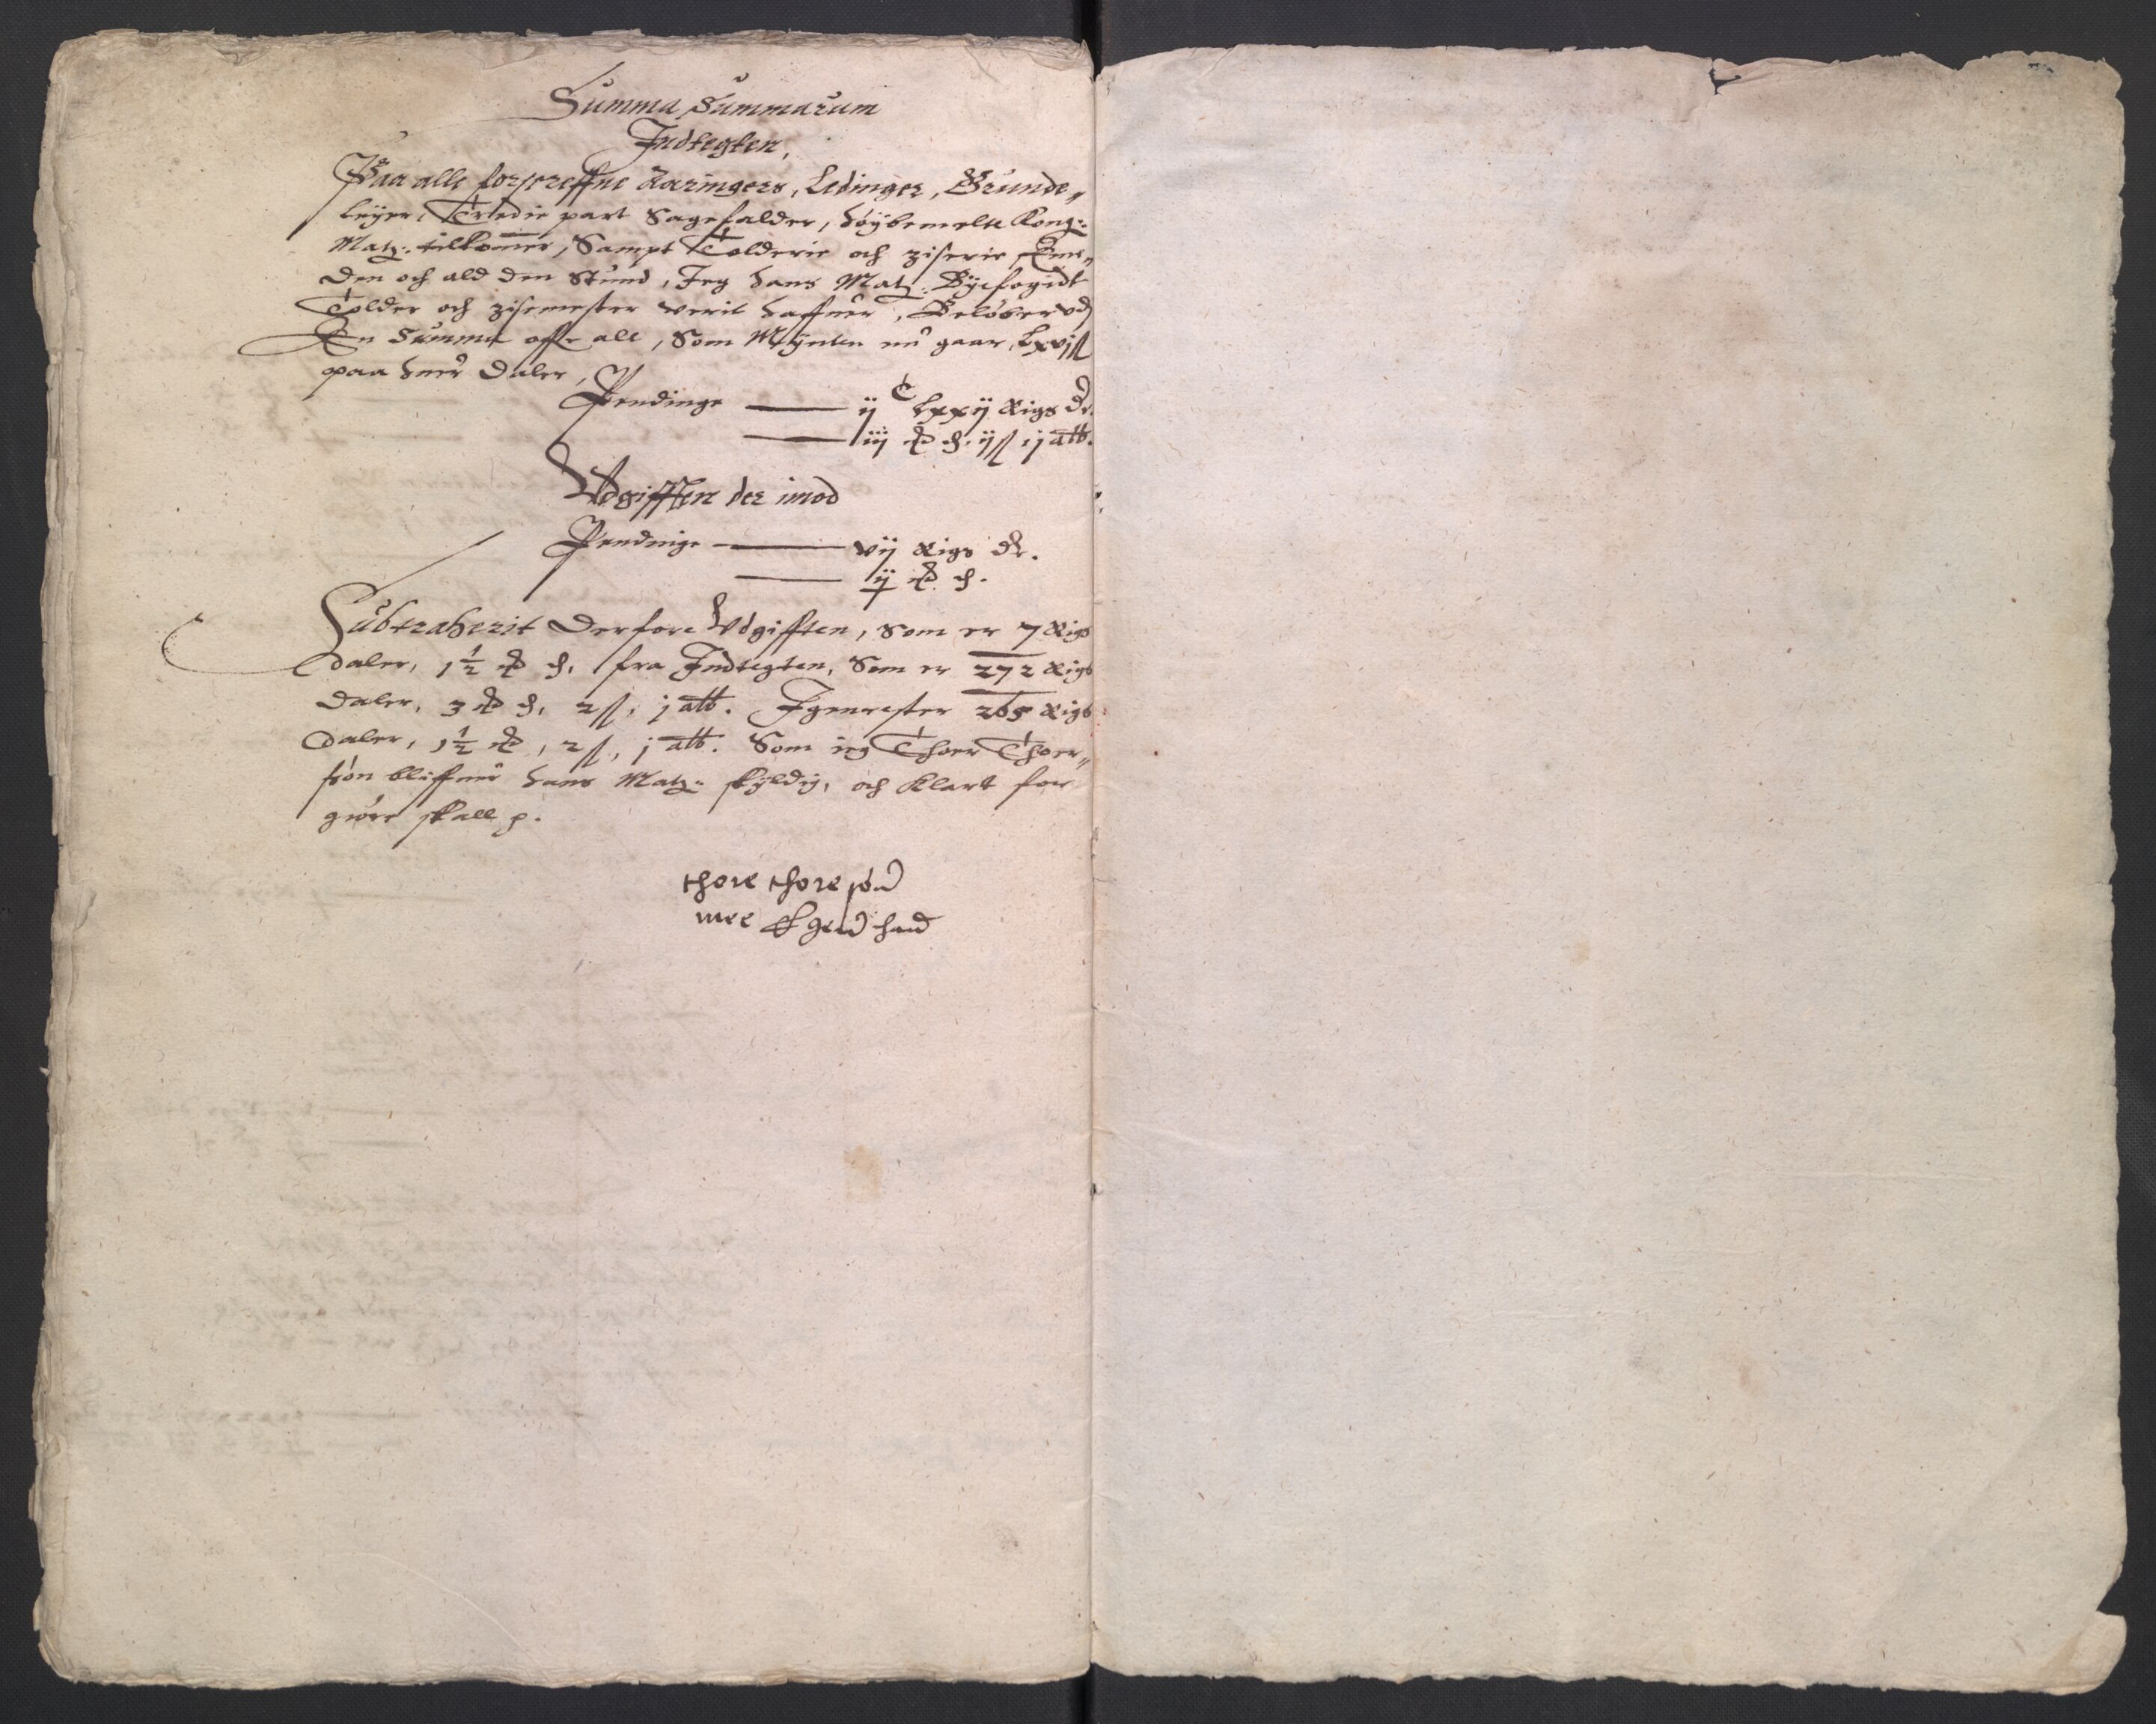 Summa Summarum
Indtegten,
Paa alle forschreffne Aaringers, Ledinger, Grunde„
leÿer, Tredie part Sagefalder, höÿbemelte Kong:
Matz: tilkomer, Sampt Tolderie och ziserie,
den och ald den Stund, Jeg hans Matz: Bÿefogidt
Tolder och zisemester verit haffuer, Belöber vdj
En Summa offr alt, Som Mÿnten nu gaar, Lxvj ß
paa huer daler,
Pendinge —— ij C Lxxij Rigs dr.
—— iij ℔ ij ß j alb.
Vdgifften der imod
Pendinge —— vij Rigs dr.
—— ij
Subtraherit derfore Vdgifften, som er 7 Rigs
daler, 1½ fra Indtegten, Som er 272 Rigs
daler, 3 2 ß, j alb. Igenrester 265 Rigs
daler, 1½ , 2 ß, j alb. Som ieg Thoer Thoer„
sön bliffuer hans Matz: skÿldig, och klart for
giöre skall p.
thore thoresøn
mee Egen hand